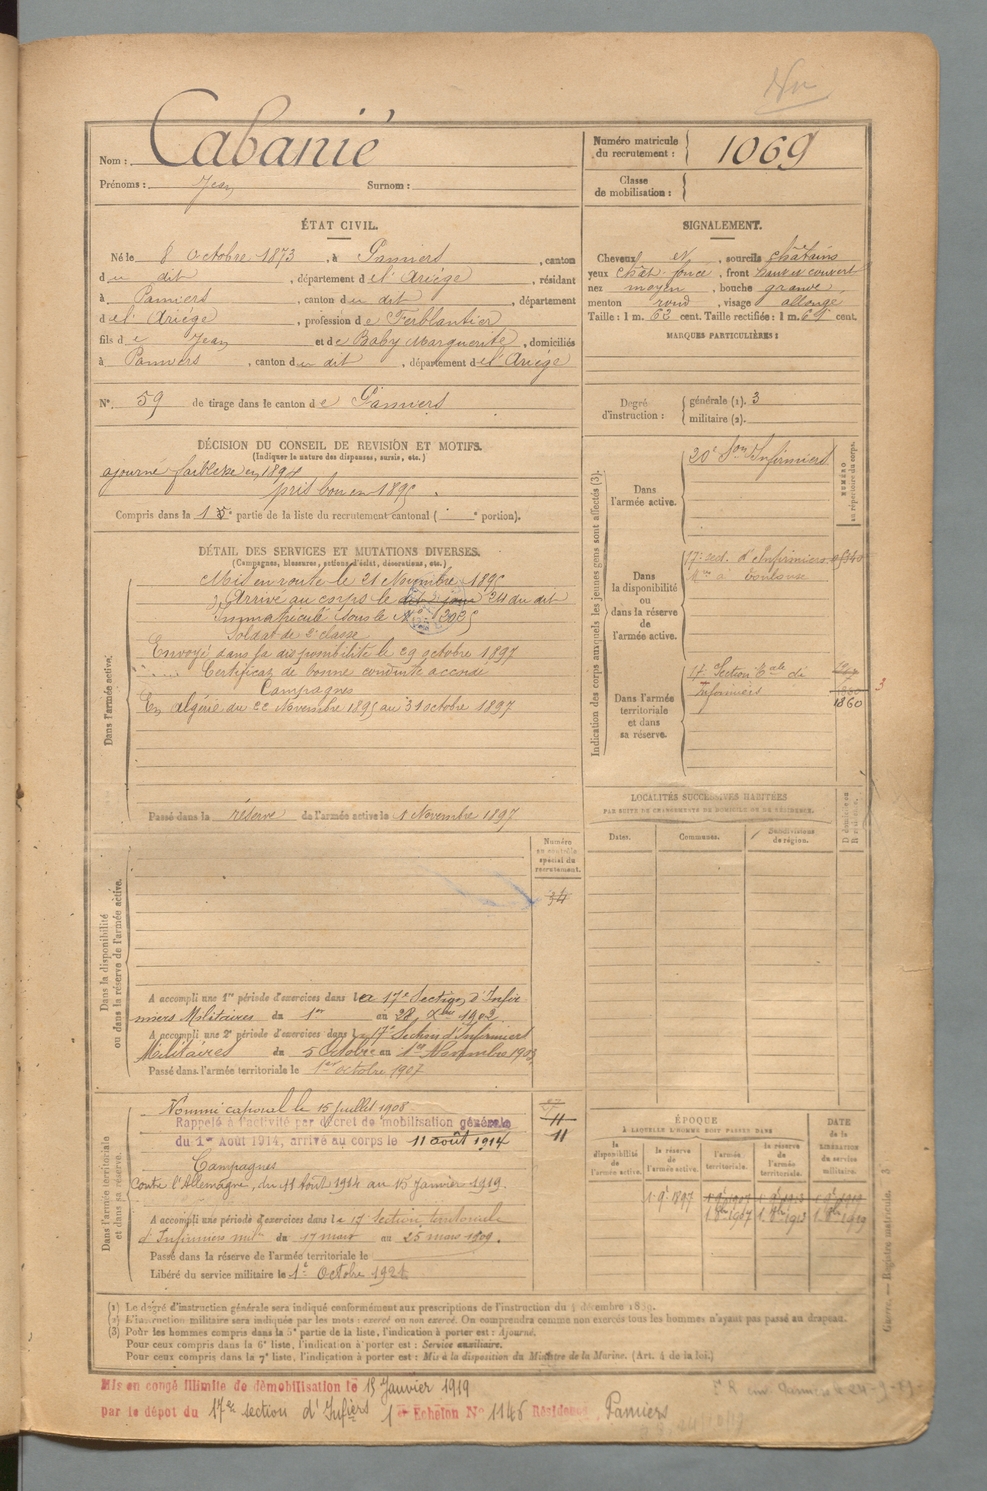 Nom : Cabanié
Prénoms : Jean Surnom :
Numéro matricule du recrutement : 1069
Classe de mobilisation :
ÉTAT CIVIL.
Né le 8 octobre 1873, à Pamiers, canton
du dit, département de l'Ariége, résidant
à Pamiers, canton du dit, département
de l'Ariége, profession de Ferblantier
fils de Jean et de Baby Marguerite, domiciliés
à Pamiers, canton du dit, département de l'Ariége
N° 59 de tirage dans le canton de Pamiers
SIGNALEMENT.
Cheveux et, sourcils châtains
yeux chât. foncé, front haut et couvert
nez moyen, bouche grande,
menton rond, visage allongé
Taille : 1 m. 62 cent. Taille rectifiée : 1 m. 64 cent.
MARQUES PARTICULIÈRES :
Degré d'instruction :
générale (1). 3
militaire (2).
DÉCISION DU CONSEIL DE REVISION ET MOTIFS.
(Indiquer la nature des dispenses, sursis, etc.)
ajourné faiblesse en 1894
pris bon en 1895.
Compris dans la 1 partie de la liste du recrutement cantonal ( e portion).
DÉTAIL DES SERVICES ET MUTATIONS DIVERSES.
(Campagnes, blessures, actions d'éclat, décorations, etc.)
Dans l'armée active.
Mis en route le 21 Novembre 1895
Arrivé au corps le dit jour 24 du dit
Immatriculé sous le N° 3035
Soldat de 2e classe
Envoyé dans la disponibilité le 29 octobre 1897
Certificat de bonne conduite accordé
Campagnes
En Algérie du 22 Novembre 1895 au 31 octobre 1897
Passé dans la réserve de l'armée active le 1 Novembre 1897
Indication des corps auxquels les jeunes gens sont affectés (3).
NUMÉRO au répertoire du corps.
Dans l'armée active.
20e Son d'Infirmiers
Dans la disponibilité ou dans la réserve de l'armée active.
17e sect. d'Infirmiers
Mres à Toulouse
Dans l'armée territoriale et dans sa réserve.
17e Section Eale de
Infirmiers
1860
3
LOCALITÉS SUCCESSIVES HABITÉES
PAR SUITE DE CHANGEMENTS DE DOMICILE OU DE RÉSIDENCE.
Dates. Communes. Subdivisions de région.
Dans la disponibilité ou dans la réserve de l'armée active.
Numéro au contrôle spécial du recrutement.
34
A accompli une 1re période d'exercices dans la 17e Section d'Infir
miers Militaires du 1er au 28 Xbre 1902
A accompli une 2e période d'exercices dans la 17e Section d'Infirmiers
Militaires du 5 Octobre au 1er Novembre 1903
Passé dans l'armée territoriale le 1er octobre 1907
Dans l'armée territoriale et dans sa réserve.
Nommé caporal le 15 Juillet 1908
Rappelé à l'activité par décret de mobilisation générale
du 1er Août 1914, arrivé au corps le 11 août 1914
11
11
Campagnes
Contre l'Allemagne, du 11 Août 1914 au 15 Janvier 1919.
A accompli une période d'exercices dans la 17 Section territoriale
d'Infirmiers milres du 17 mars au 25 mars 1909.
Passé dans la réserve de l'armée territoriale le
Libéré du service militaire le 1er Octobre 1921
ÉPOQUE
À LAQUELLE L'HOMME DOIT PASSER DANS
la disponibilité de l'armée active. la réserve de l'armée active. l'armée territoriale. la réserve de l'armée territoriale. DATE de la LIBÉRATION du service militaire.
1 9e 1897 1 9e 1907 1 9e 1913 1 9e 1919
1. 8bre 1907 1. 8bre 1913 1. 8bre 1919
(1) Le degré d'instruction générale sera indiqué conformément aux prescriptions de l'instruction du 4 décembre 1889.
(2) L'instruction militaire sera indiquée par les mots : exercé ou non exercé. On comprendra comme non exercés tous les hommes n'ayant pas passé au drapeau.
(3) Pour les hommes compris dans la 5e partie de la liste, l'indication à porter est : Ajourné.
Pour ceux compris dans la 6e liste, l'indication à porter est : Service auxiliaire.
Pour ceux compris dans la 7e liste, l'indication à porter est : Mis à la disposition du Ministre de la Marine. (Art. 4 de la loi.)
Guerre. — Registre matricule.
Mis en congé illimité de démobilisation le 15 Janvier 1919
par le dépôt du 17e section d'Infiers 1er Echelon N° 1146 Résidence Pamiers